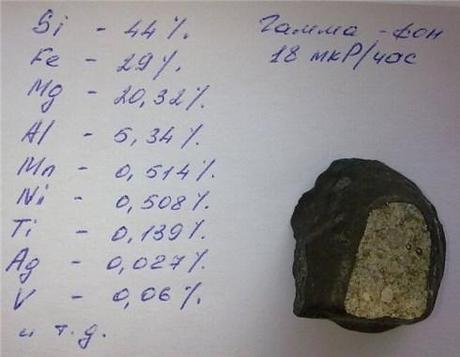 Si - 44%.
Fe - 29%.
Mg - 20,32%.
Al - 5,34%.
Mn - 0,514%.
Ni - 0,508%.
Ti - 0,139%.
Ag - 0,027%.
V - 0,06%.
и т.д.
Гамма-фон
18 мкР/час